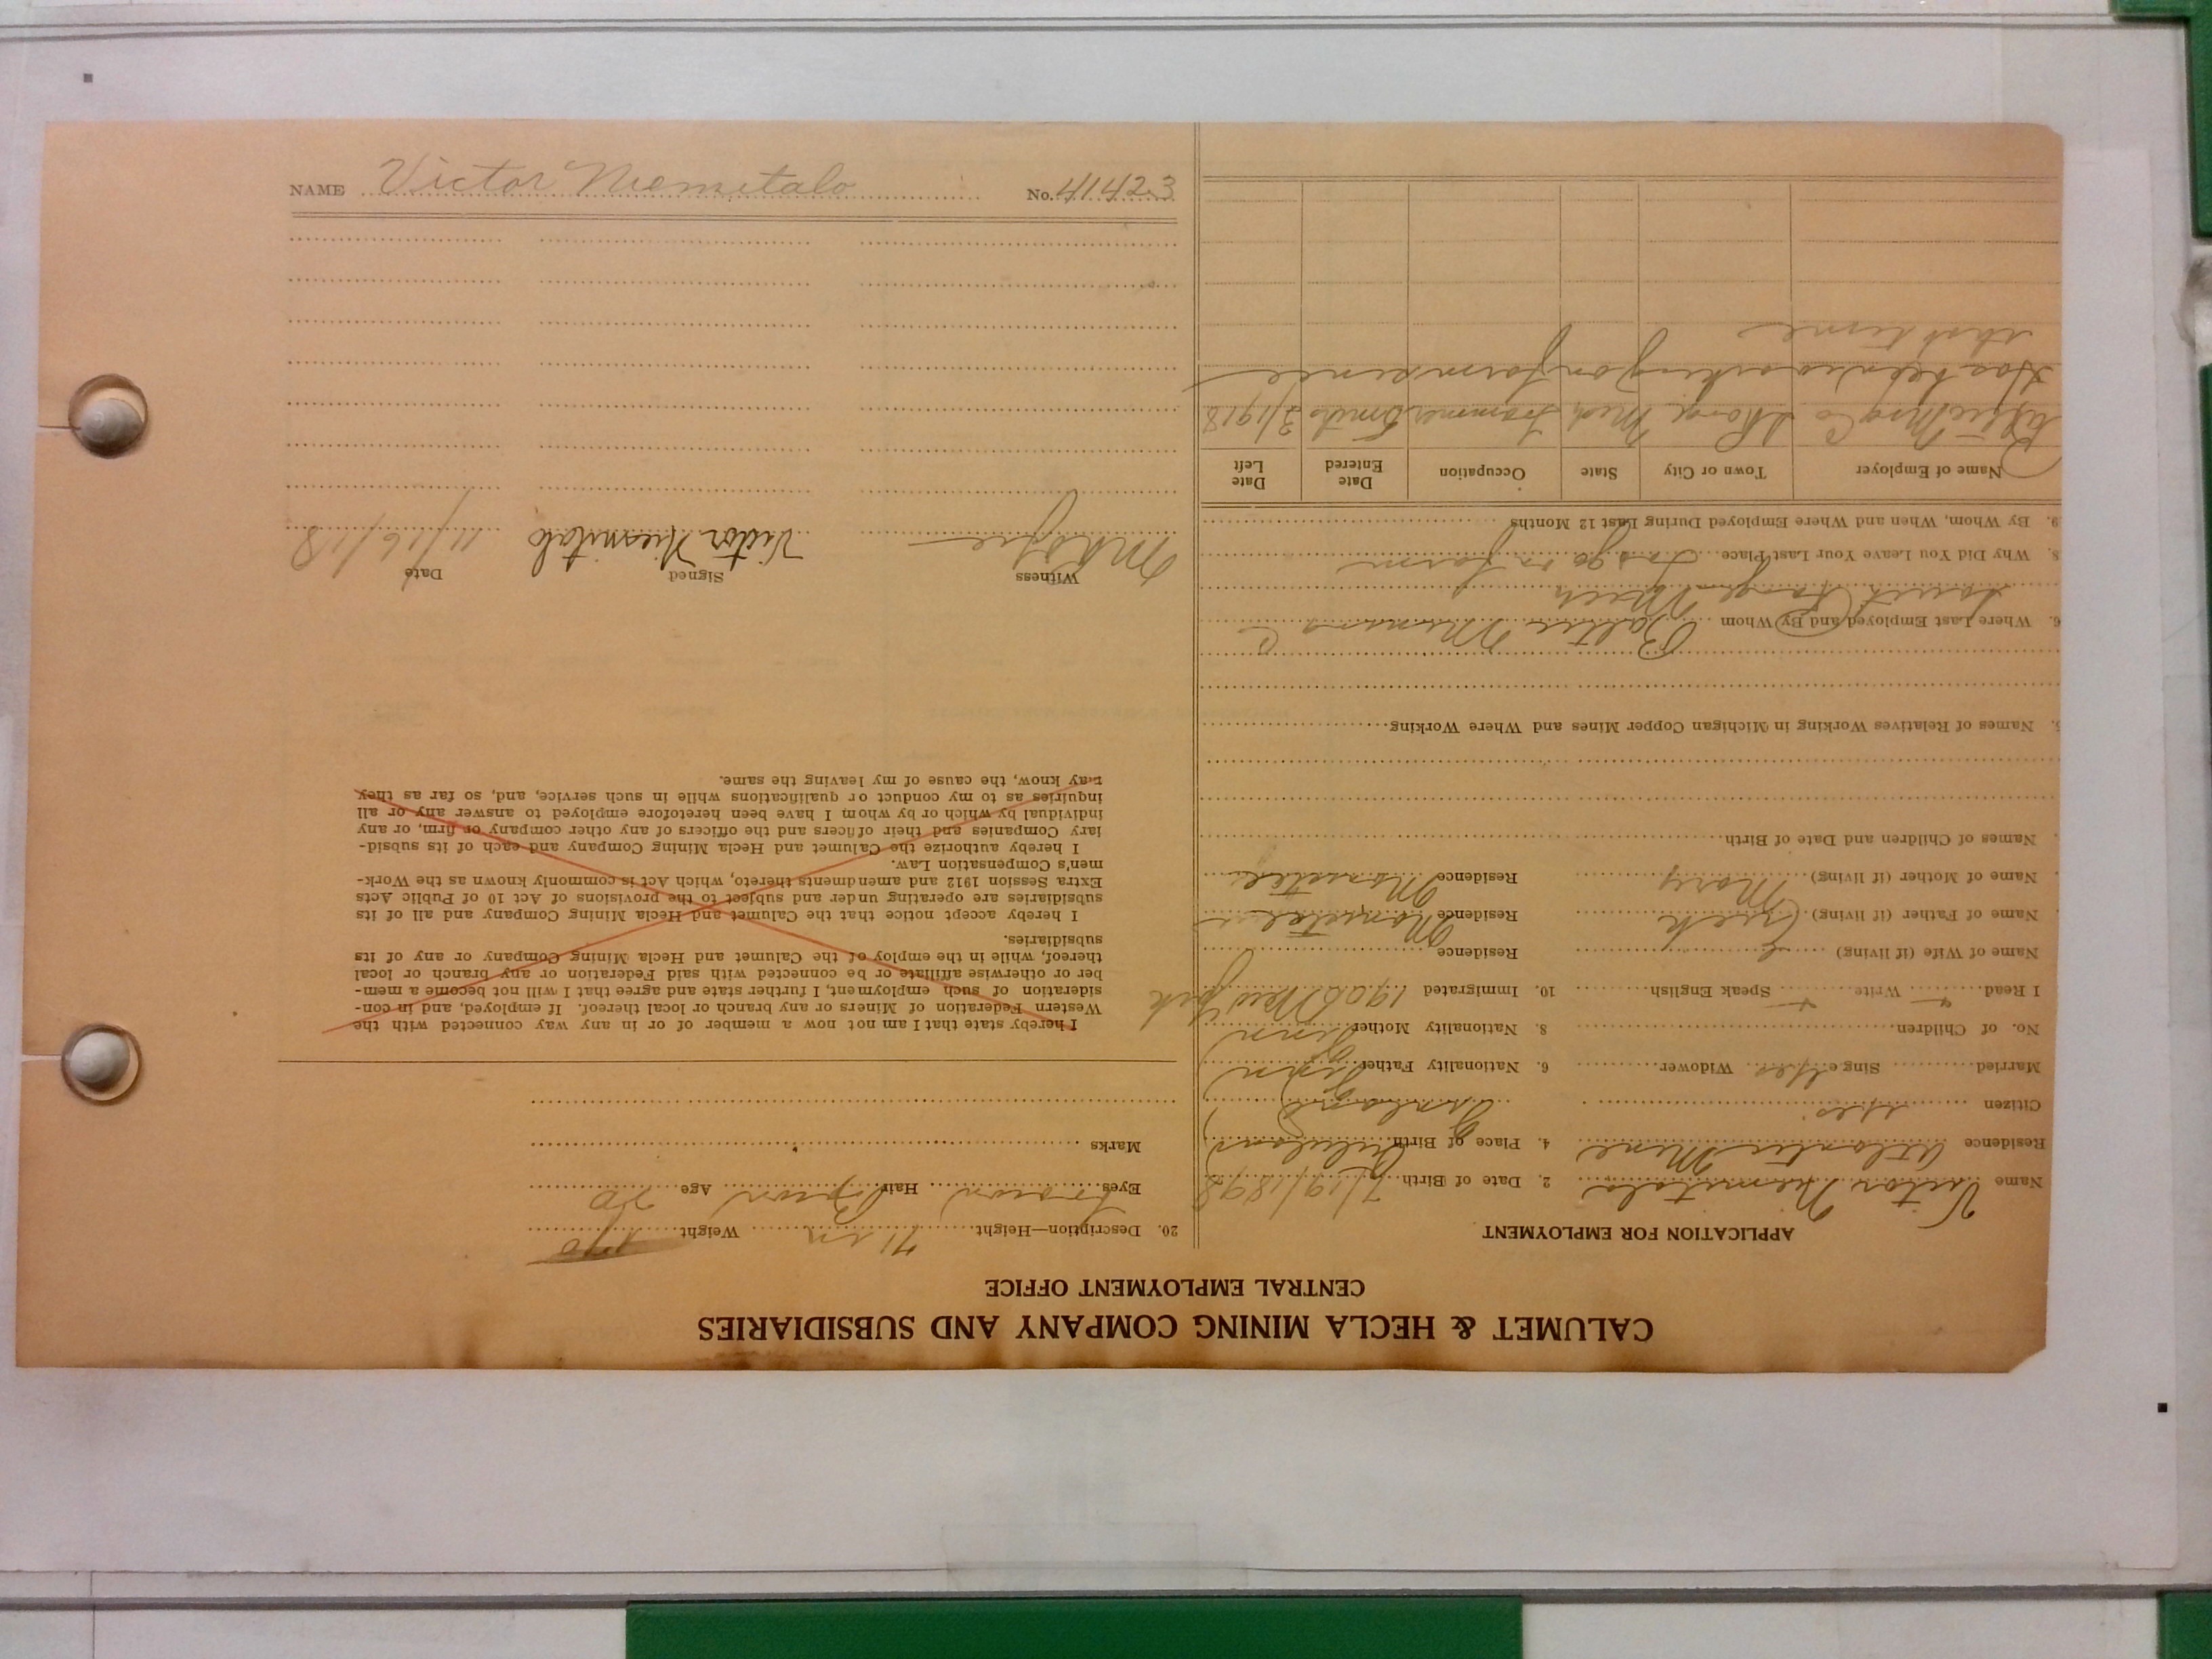 CALUMET & HECLA MINING COMPANY AND SUBSIDIARIES
CENTRAL EMPLOYMENT OFFICE
APPLICATION FOR EMPLOYMENT
Name Victor Niemitalo 2. Date of Birth 7/19/1898
Residence Atlantic Mine 4. Place of Birth
Citizen Yes Finland
Married Single Yes Widower 6. Nationality Father Finn
No. of Children 8. Nationality Mother Finn
I Read Write Speak English 10. Immigrated New York
Name of Wife (if living) Residence
Name of Father (if living) Residence
Name of Mother (if living) Mary Residence
Names of Children and Date of Birth
Names of Relatives Working in Michigan Copper Mines and Where Working
6. Where Last Employed and By Whom Baltic Mining Co
South Range Mich
8. Why Did You Leave Your Last Place To go on farm
9. By Whom, When and Where Employed During Last 12 Months
Name of Employer Town or City State Occupation Date Entered Date Left
Baltic Mng Co S Range Mich Trammer 3/1918
Has been working on farm since
that time
20. Description—Height 71 in Weight 170
Eyes Brown Hair Brown Age 20
Marks
I hereby state that I am not now a member of or in any way connected with the
Western Federation of Miners or any branch or local thereof. If employed, and in con-
sideration of such employment, I further state and agree that I will not become a mem-
ber or otherwise affiliate or be connected with said Federation or any branch or local
thereof, while in the employ of the Calumet and Hecla Mining Company or any of its
subsidiaries.
I hereby accept notice that the Calumet and Hecla Mining Company and all of its
subsidiaries are operating under and subject to the provisions of Act 10 of Public Acts
Extra Session 1912 and amendments thereto, which Act is commonly known as the Work-
men's Compensation Law.
I hereby authorize the Calumet and Hecla Mining Company and each of its subsid-
iary Companies and their officers and the officers of any other company or firm, or any
individual by which or by whom I have been heretofore employed to answer any or all
inquiries as to my conduct or qualifications while in such service, and, so far as they
may know, the cause of my leaving the same.
Witness Signed Date
Victor Niemitalo 11/16/18
NAME Victor Niemitalo No. 41423